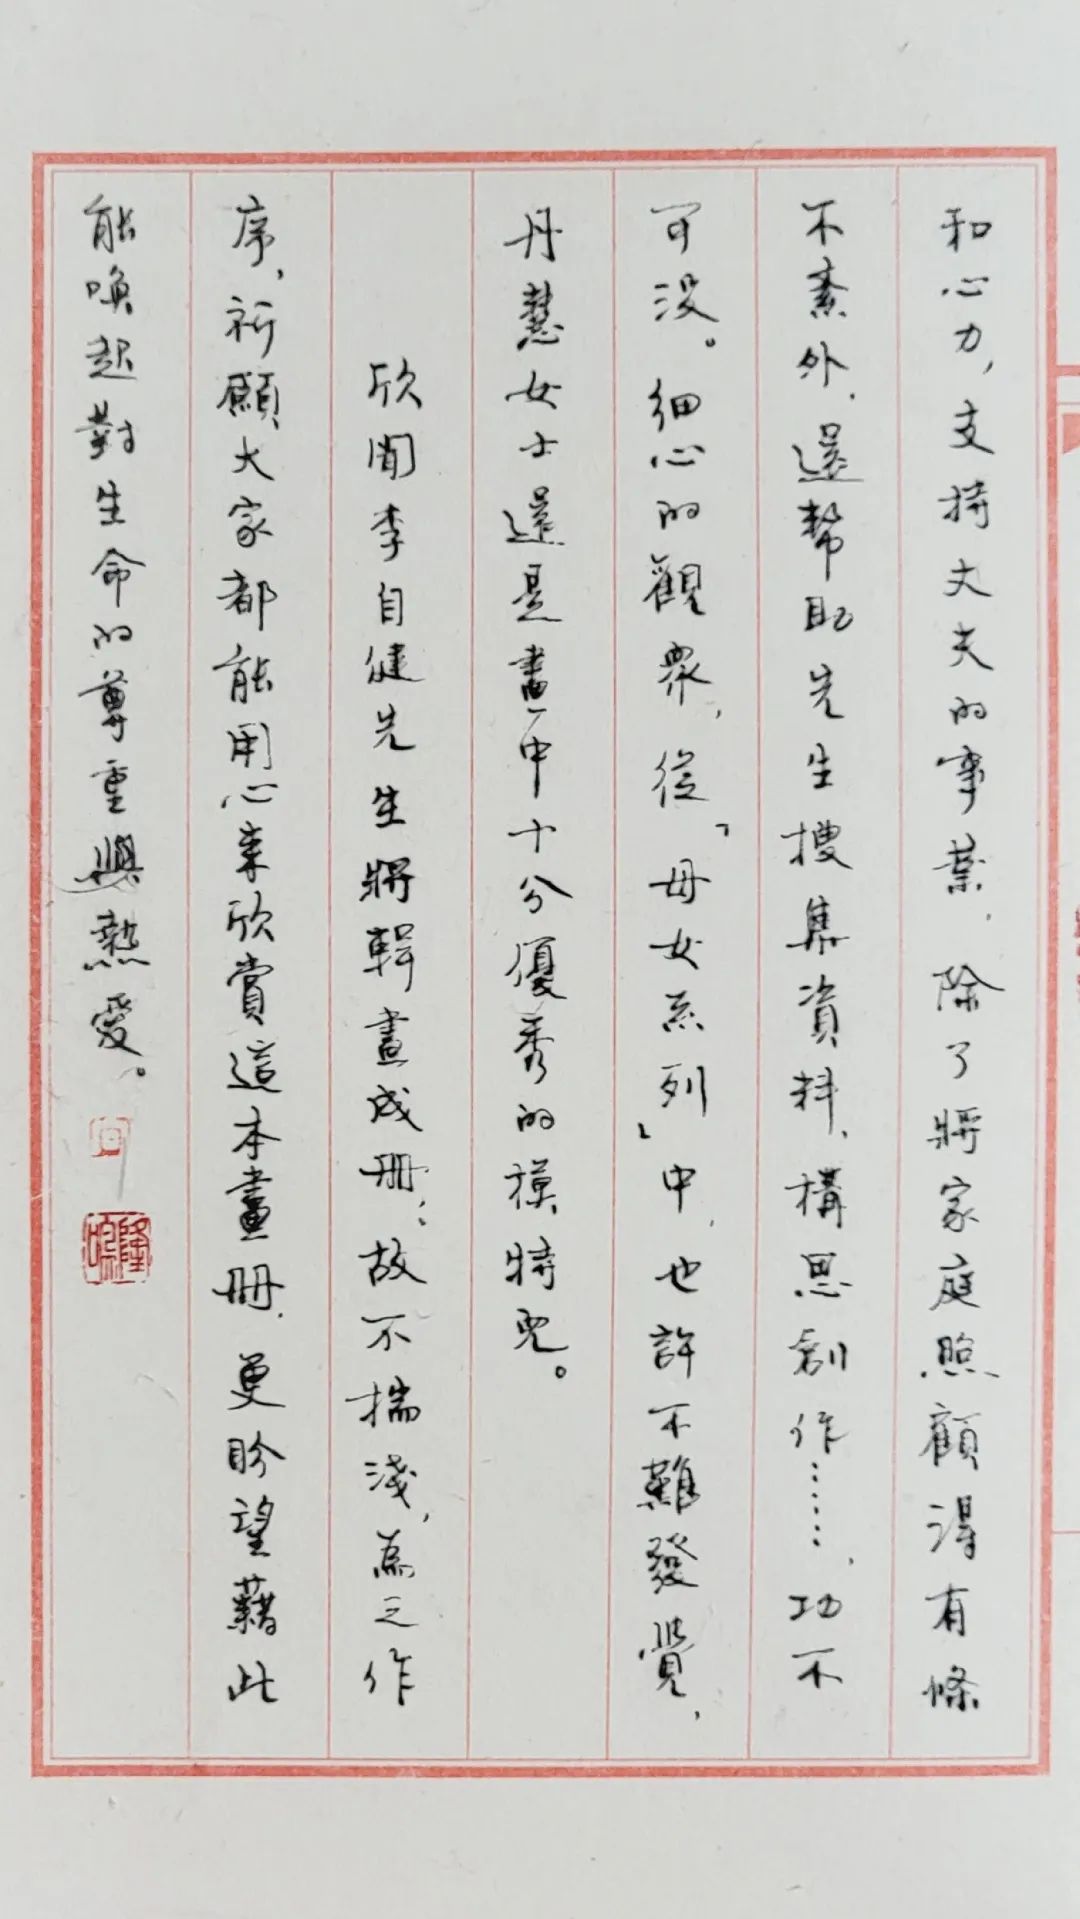 和心力，支持丈夫的事業，除了將家庭照顧得有條
不紊外，還幫助先生搜集資料、構思創作……，功不
可没。細心的觀眾，從「母女系列」中，也許不難發覺，
丹慧女士還是畫中十分優秀的模特兒。
欣聞李自健先生將輯畫成册；故不揣淺，為之作
序，祈願大家都能用心来欣賞這本畫册，更盼望藉此
能喚起對生命的尊重與熱愛。